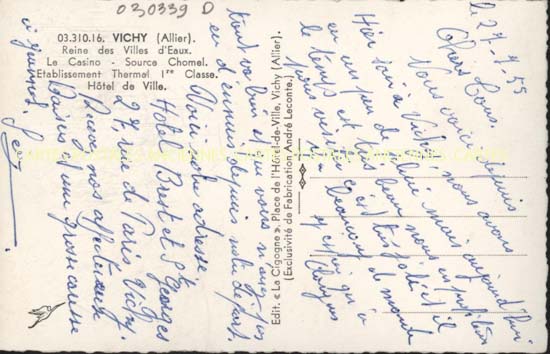 030339 D
03.310.16. VICHY (Allier).
Reine des Villes d'Eaux.
Le Casino - Source Chomel.
Etablissement Thermal 1re Classe.
Hôtel de Ville.
Edit. « La Cigogne ». Place de l'Hôtel-de-Ville, Vichy (Allier).
(Exclusivité de Fabrication André Leconte.)
le 27-7-55
Chers Tous.
Nous voici depuis
Hier soir à Vichy, nous avons
eu un peu de pluie mais aujourd'hui
le temps est très beau, nous en profitons
pour visiter c'est très joli et il
y a beaucoup de monde
j'espère qu'à
tout va bien et que vous n'avez pas
eu d'ennuis depuis notre départ.
Voici notre adresse
Hotel Brest et St Georges
27, rue de Paris Vichy.
Recevez nos affectueux
Baisers et une grosse caresse
à